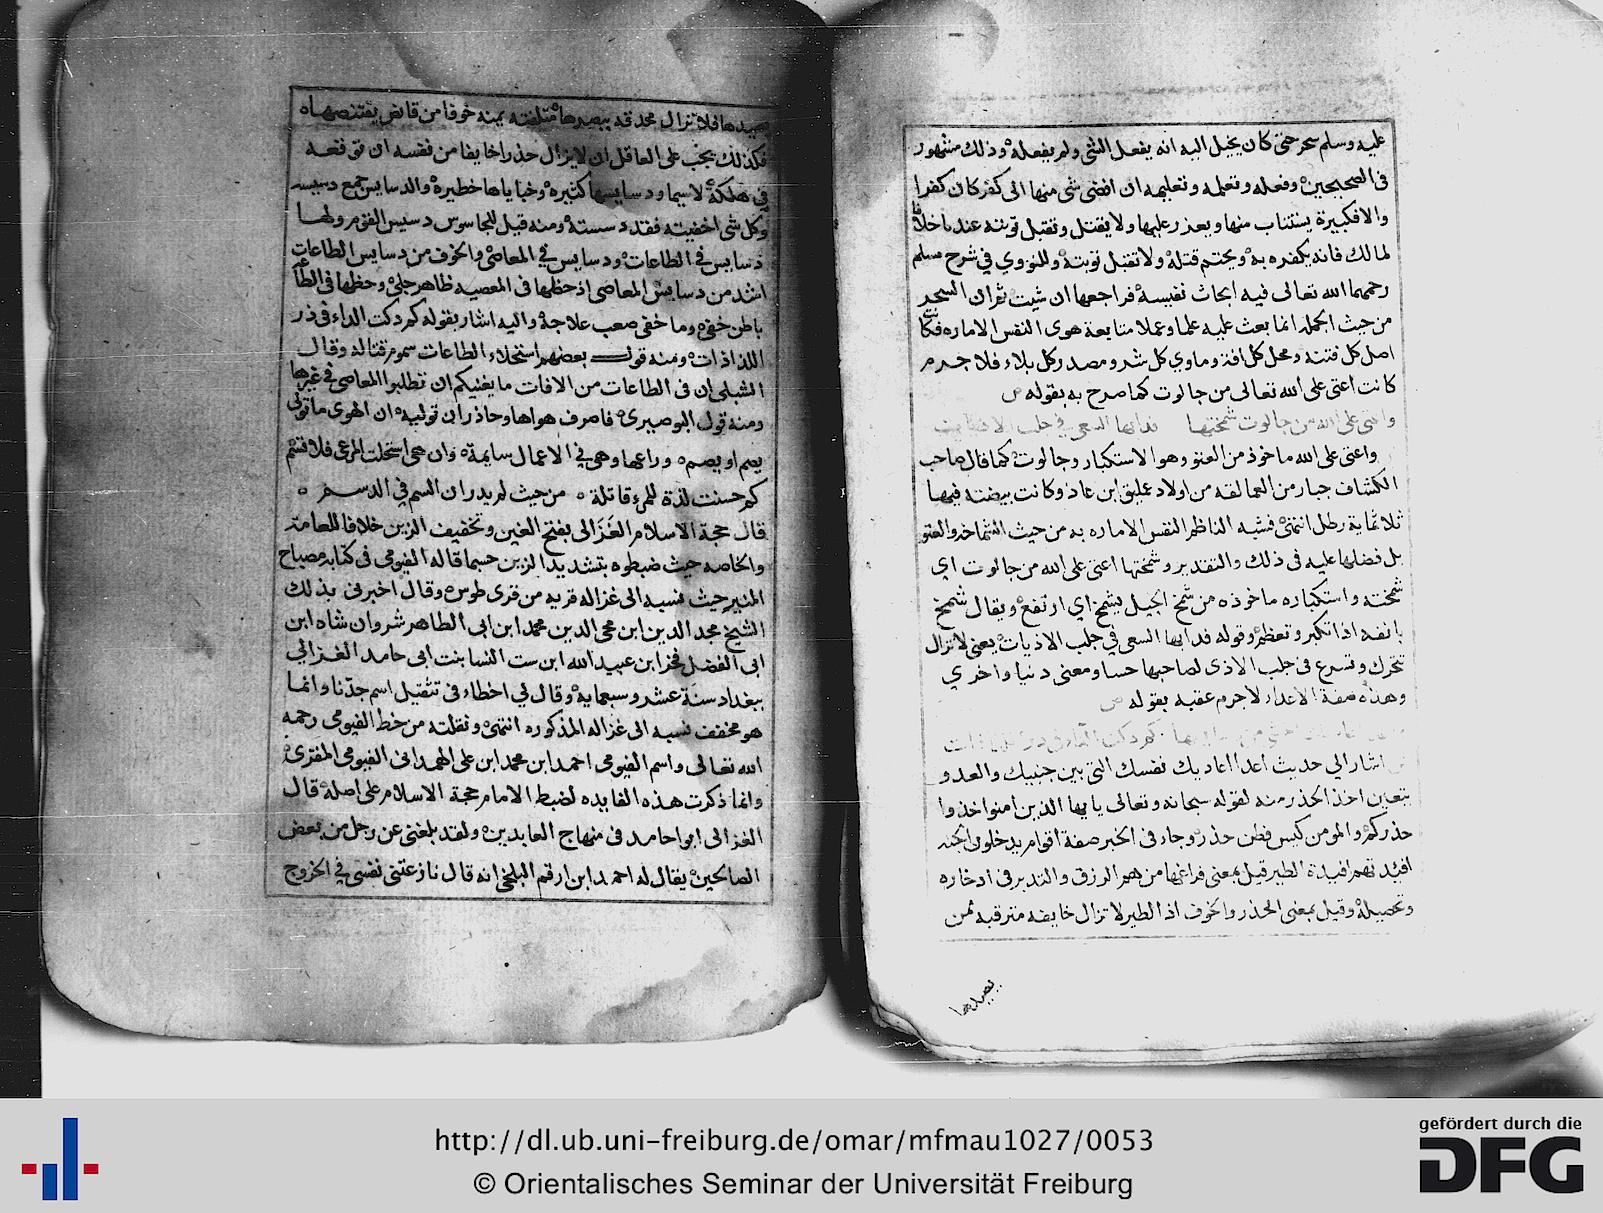 عليه وسلم سحر حتى كان يخيل اليه انه يفعل الشي ولم يفعله وذلك مشهور
في الصحيحين وفعله وتعلمه وتعليمه ان افضى شي منها الى كفر كان كفرا
والا فكبيرة يستتاب منها ويعذر عليها ولا يقتل وتقبل توبته عندنا خلافا
لمالك فانه يكفره به ويحتم قتله ولا تقبل توبته وللنووي في شرح مسلم
رحمهما الله تعالى فيه ابحاث نفيسة فراجعها ان شيت ثم ان السحر
من حيث الجملة انما بعث عليه علما وعملا متابعة هوى النفس الاماره فكانت
اصل كل فتنة ومحل كل افة وماوي كل شر ومصدر كل بلاء فلا جرم
كانت اعتى على الله تعالى من جالوت كما صرح به بقوله ص
واعتى على الله من جالوت شمختها فدابها السعي في جلب الاذيات
واعتى على الله ماخوذ من العتو وهو الاستكبار وجالوت كما قال صاحب
الكشاف جبار من العمالقه من اولاد عمليق ابن عاد وكانت بيضته فيها
ثلاثماية رطل انتهى فشبه الناظم النفس الاماره به من حيث الشماخه والعتو
بل فضلها عليه في ذلك والتقدير وشمختها اعتى على الله من جالوت اي
شمخته واستكباره ماخوذه من شمخ الجبل يشمخ اي ارتفع ويقال شمخ
بانفه اذا تكبر وتعظم وقوله فدابها السعي في جلب الاذيات يعني لا تزال
تتحرك وتسرع في جلب الاذى لصاحبها حسا ومعنى دنيا واخرى
وهذه صفة الاعدا لا جرم عقبه بقوله ص
كم دكت
اشار الى حديث اعدا اعاديك نفسك التي بين جنبيك والعدو
يتعين اخذ الحذر منه لقوله سبحانه وتعالى يايها الذين امنوا خذوا
حذركم والمومن كيس فطن حذر وجاء في الخبر صفة اقوام يدخلون الجنه
افيدتهم افيدة الطير قيل بمعنى فراغها من هم الرزق والتدبر في ادخاره
وتحصيله وقيل بمعنى الحذر والخوف اذ الطير لا تزال خايفه مترقبه لمن
يصيدها
يصيدها فلا تزال محدقه ببصرها متلفته يمنه خوفا من قانص يقتنصها ه
فكذلك يجب على العاقل ان لا يزال حذرا خايفا من نفسه ان توقعه
في هلكة لاسيما ودسايسها كثيره وخباياها خطيره والدسايس جمع دسيسه
وكل شي اخفيته فقد دسسته ومنه قيل للجاسوس دسيس القوم ولها
دسايس في الطاعات ودسايس في المعاصي والخوف من دسايس الطاعات
اشد من دسايس المعاصي اذ حظها في المعصيه ظاهر جلي وحظها في الطاعة
باطن خفي وما خفي صعب علاجه واليه اشار بقوله كم دكت الداء في در
اللذاذات ومنه قول بعضهم استحلاء الطاعات سموم قتاله وقال
الشبلي ان في الطاعات من الافات ما يغنيكم ان تطلبوا المعاصي في غيرها
ومنه قول البوصيري فاصرف هواها وحاذر ان توليه ان الهوى ما تولى
يصم او يصم وراعها وهي في الاعمال سايمة وان هي استحلت المرعى فلا تسم
كم حسنت لذة للمرء قاتلة ه من حيث لم يدر ان السم في الدسم ه
قال حجة الاسلام الغزالي بفتح الغين وتخفيف الزين خلافا للعامه
والخاصه حيث ضبطوه بتشديد الزين حسبما قاله الفيومي في كتابه مصباح
المنير حيث نسبه الى غزاله قريه من قرى طوس وقال اخبرني بذلك
الشيخ مجد الدين ابن محي الدين محمد ابن ابي الطاهر شروان شاه ابن
ابي الفضل فخر ابن عبيد الله ابن ست النسا بنت ابي حامد الغزالي
ببغداد سنة عشر وسبعماية وقال لي اخطاء في تثقيل اسم جدنا وانما
هو مخفف نسبه الى غزاله المذكوره انتهى ونقلته من خط الفيومي رحمه
الله تعالى واسم الفيومي احمد ابن محمد ابن علي الهمداني الفيومي المقري
وانما ذكرت هذه الفايده لضبط الامام حجة الاسلام على اصله قال
الغزالي ابوا حامد في منهاج العابدين ولقد بلغني عن رجل من بعض
الصالحين يقال له احمد ابن ارقم البلخي انه قال نازعتني نفسي في الخروج
http://dl.ub.uni-freiburg.de/omar/mfmau1027/0053
© Orientalisches Seminar der Universität Freiburg
gefördert durch die
DFG